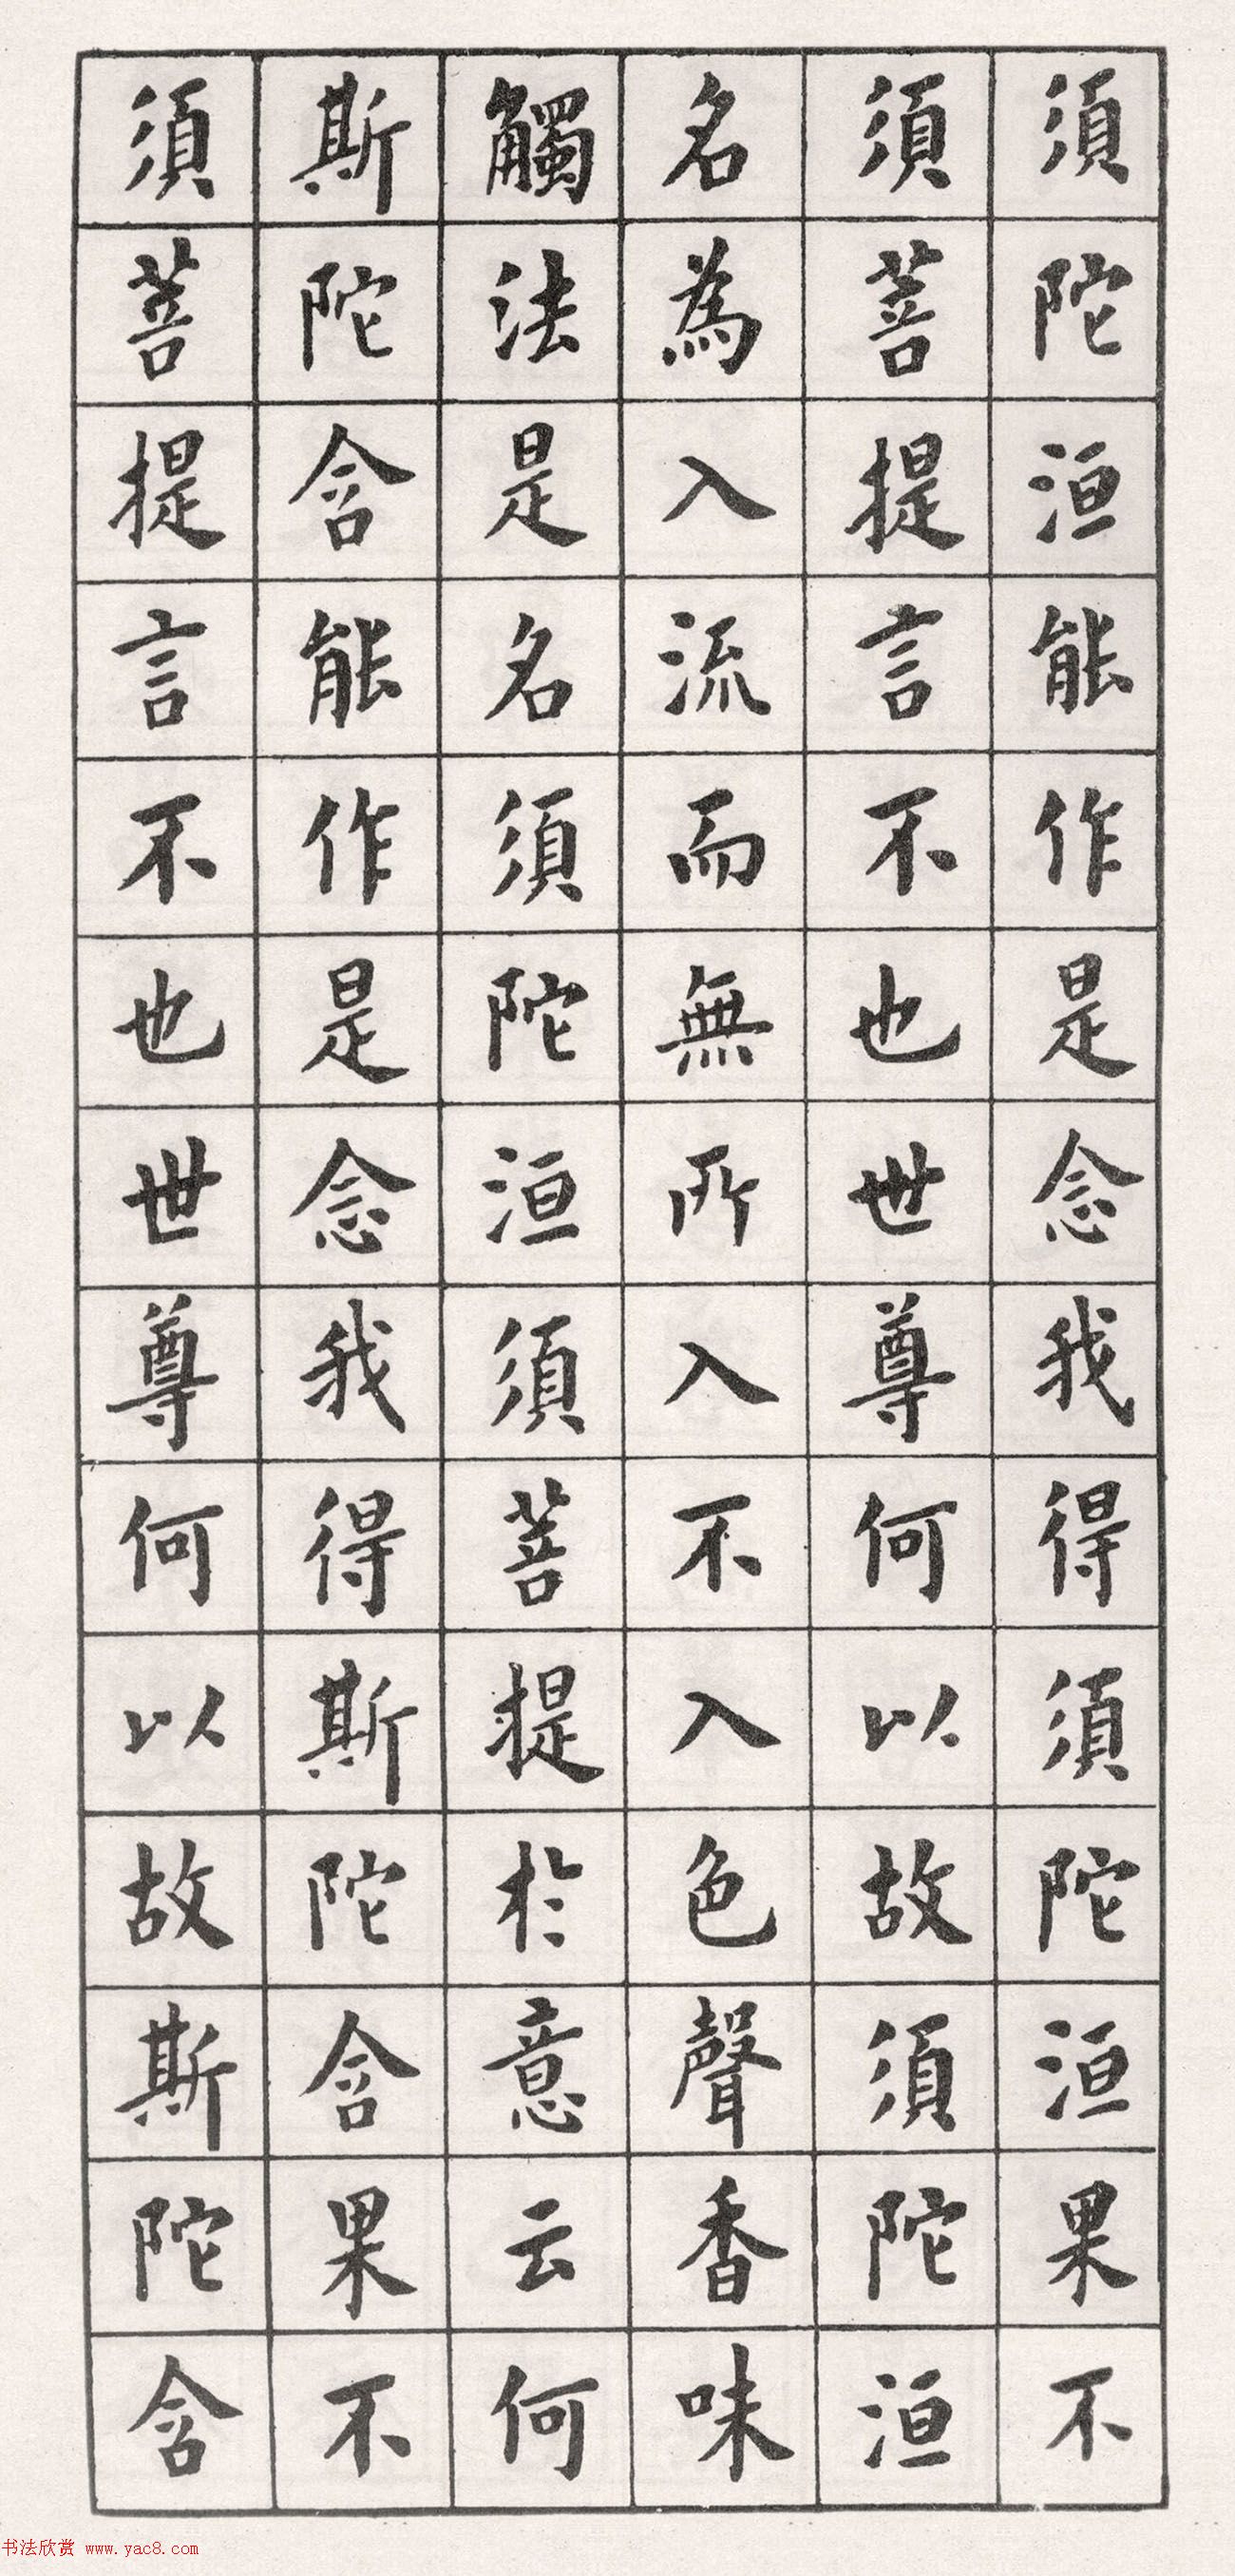 須陀洹能作是念我得須陀洹果不
須菩提言不也世尊何以故須陀洹
名為入流而無所入不入色聲香味
觸法是名須陀洹須菩提於意云何
斯陀含能作是念我得斯陀含果不
須菩提言不也世尊何以故斯陀含
书法欣赏 www.yac8.com